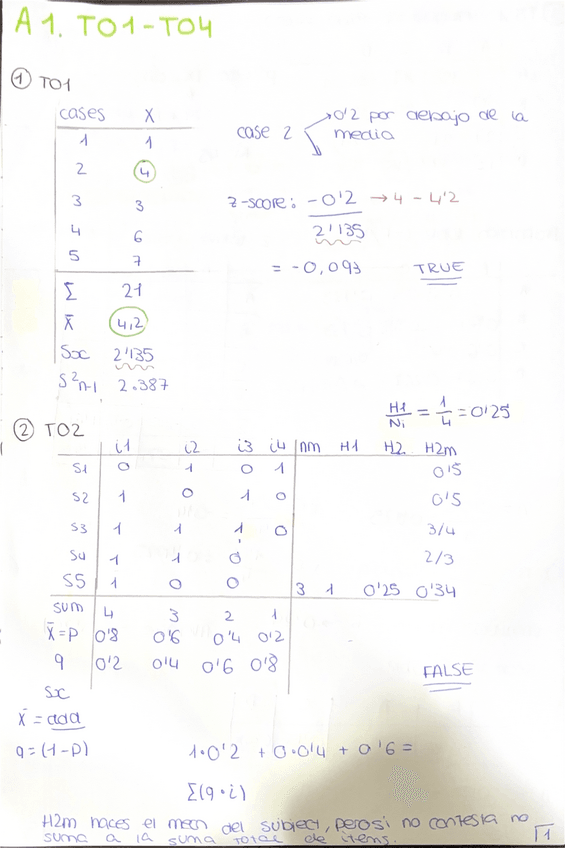 A1. T01-T04
① T01
cases X
1 1
2 4
3 3
4 6
5 7
Σ 21
X̄ 4,2
Sx 2'135
S²n-1 2.387
case 2 → 0'2 por debajo de la
media
z-score: -0'2 → 4 - 4'2
2'135
= -0,093 TRUE
② T02
H1/Ni = 1/4 = 0'25
i1 i2 i3 i4 nm H1 H2 H2m
S1 0 1 0 1 0'5
S2 1 0 1 0 0'5
S3 1 1 1 0 3/4
S4 1 1 0 2/3
S5 1 0 0 3 1 0'25 0'34
sum 4 3 2 1
X̄=P 0'8 0'6 0'4 0'2
q 0'2 0'4 0'6 0'8
FALSE
Sx
X̄ = add
q=(1-P) 1·0'2 + 0·0'4 + 0'6 =
Σ(q·i)
H2m haces el mean del subject, pero si no contesta no
suma a la suma total de items.
1